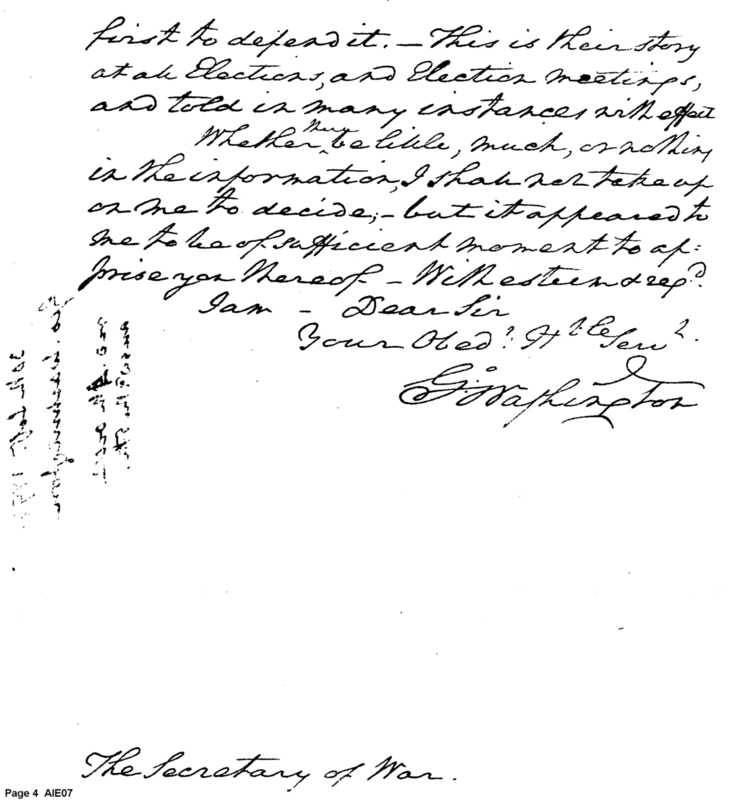 first to defend it. — This is their story
at all Elections, and Election meetings,
and told in many instances with effect
Whether there be little, much, or nothing
in the information, I shall not take up
on me to decide; — but it appeared to
me to be of sufficient moment to ap:
prise you thereof — With esteem & regd.
I am — Dear Sir
Your Obedt. Hble Servt.
Go: Washington
The Secretary of War.
Page 4 AIE07